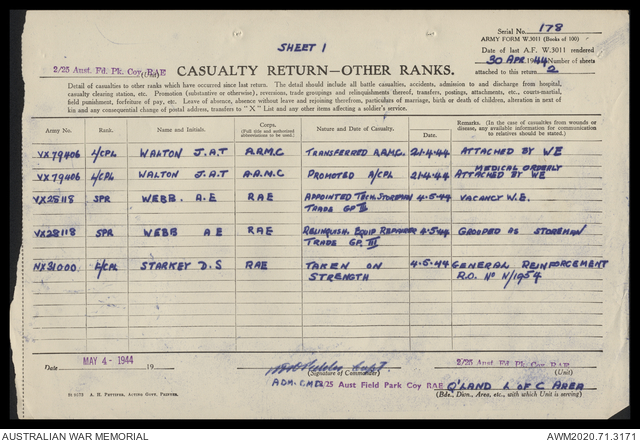 Serial No. 178
SHEET 1
ARMY FORM W.3011 (Books of 100)
Date of last A.F. W.3011 rendered
30 APR 1944 Number of sheets
attached to this return 2
2/25 Aust. Fd. Pk. Coy. RAE (Unit)
CASUALTY RETURN—OTHER RANKS.
Detail of casualties to other ranks which have occurred since last return. The detail should include all battle casualties, accidents, admission to and discharge from hospital,
casualty clearing station, etc. Promotion (substantive or otherwise), reversion, trade groupings and relinquishments thereof, transfers, postings, attachments, etc., courts-martial,
field punishment, forfeiture of pay, etc. Leave of absence, absence without leave and rejoining therefrom, particulars of marriage, birth or death of children, alteration in next of
kin and any consequential change of postal address, transfers to "X" List and any other items affecting a soldier's service.
Army No. Rank. Name and Initials. Corps. (Full title and authorized abbreviations to be used.) Nature and Date of Casualty. Date. Remarks. (In the case of casualties from wounds or disease, any available information for communication to relatives should be stated.)
VX79406 L/CPL WALTON J.A.T A.A.M.C TRANSFERRED A.A.M.C. 21-4-44 ATTACHED BY WE
MEDICAL ORDERLY
VX79406 L/CPL WALTON J.A.T A.A.M.C PROMOTED A/CPL 21-4-44 ATTACHED BY WE
VX28118 SPR WEBB. A.E RAE APPOINTED TECH. STOREMAN 4-5-44 VACANCY W.E.
TRADE GP III
VX28118 SPR WEBB A E RAE RELINQUISH. EQUIP REPAIRER 4-5-44 GROOPED AS STOREMAN
TRADE GP. III
NX31000 L/CPL STARKEY D.S RAE TAKEN ON 4-5-44 GENERAL REINFORCEMENT
STRENGTH R.O. No N/1954
Date MAY 4 - 1944 19
Capt
(Signature of Commander)
2/25 Aust Fd. Pk. Coy. RAE
(Unit)
ADM. CMD. 2/25 Aust Field Park Coy RAE Q'LAND L of C AREA
(Bde., Divn., Area, etc., with which Unit is serving)
A. H. PETTIFER, ACTING GOVT. PRINTER.
AUSTRALIAN WAR MEMORIAL
AWM2020.71.3171